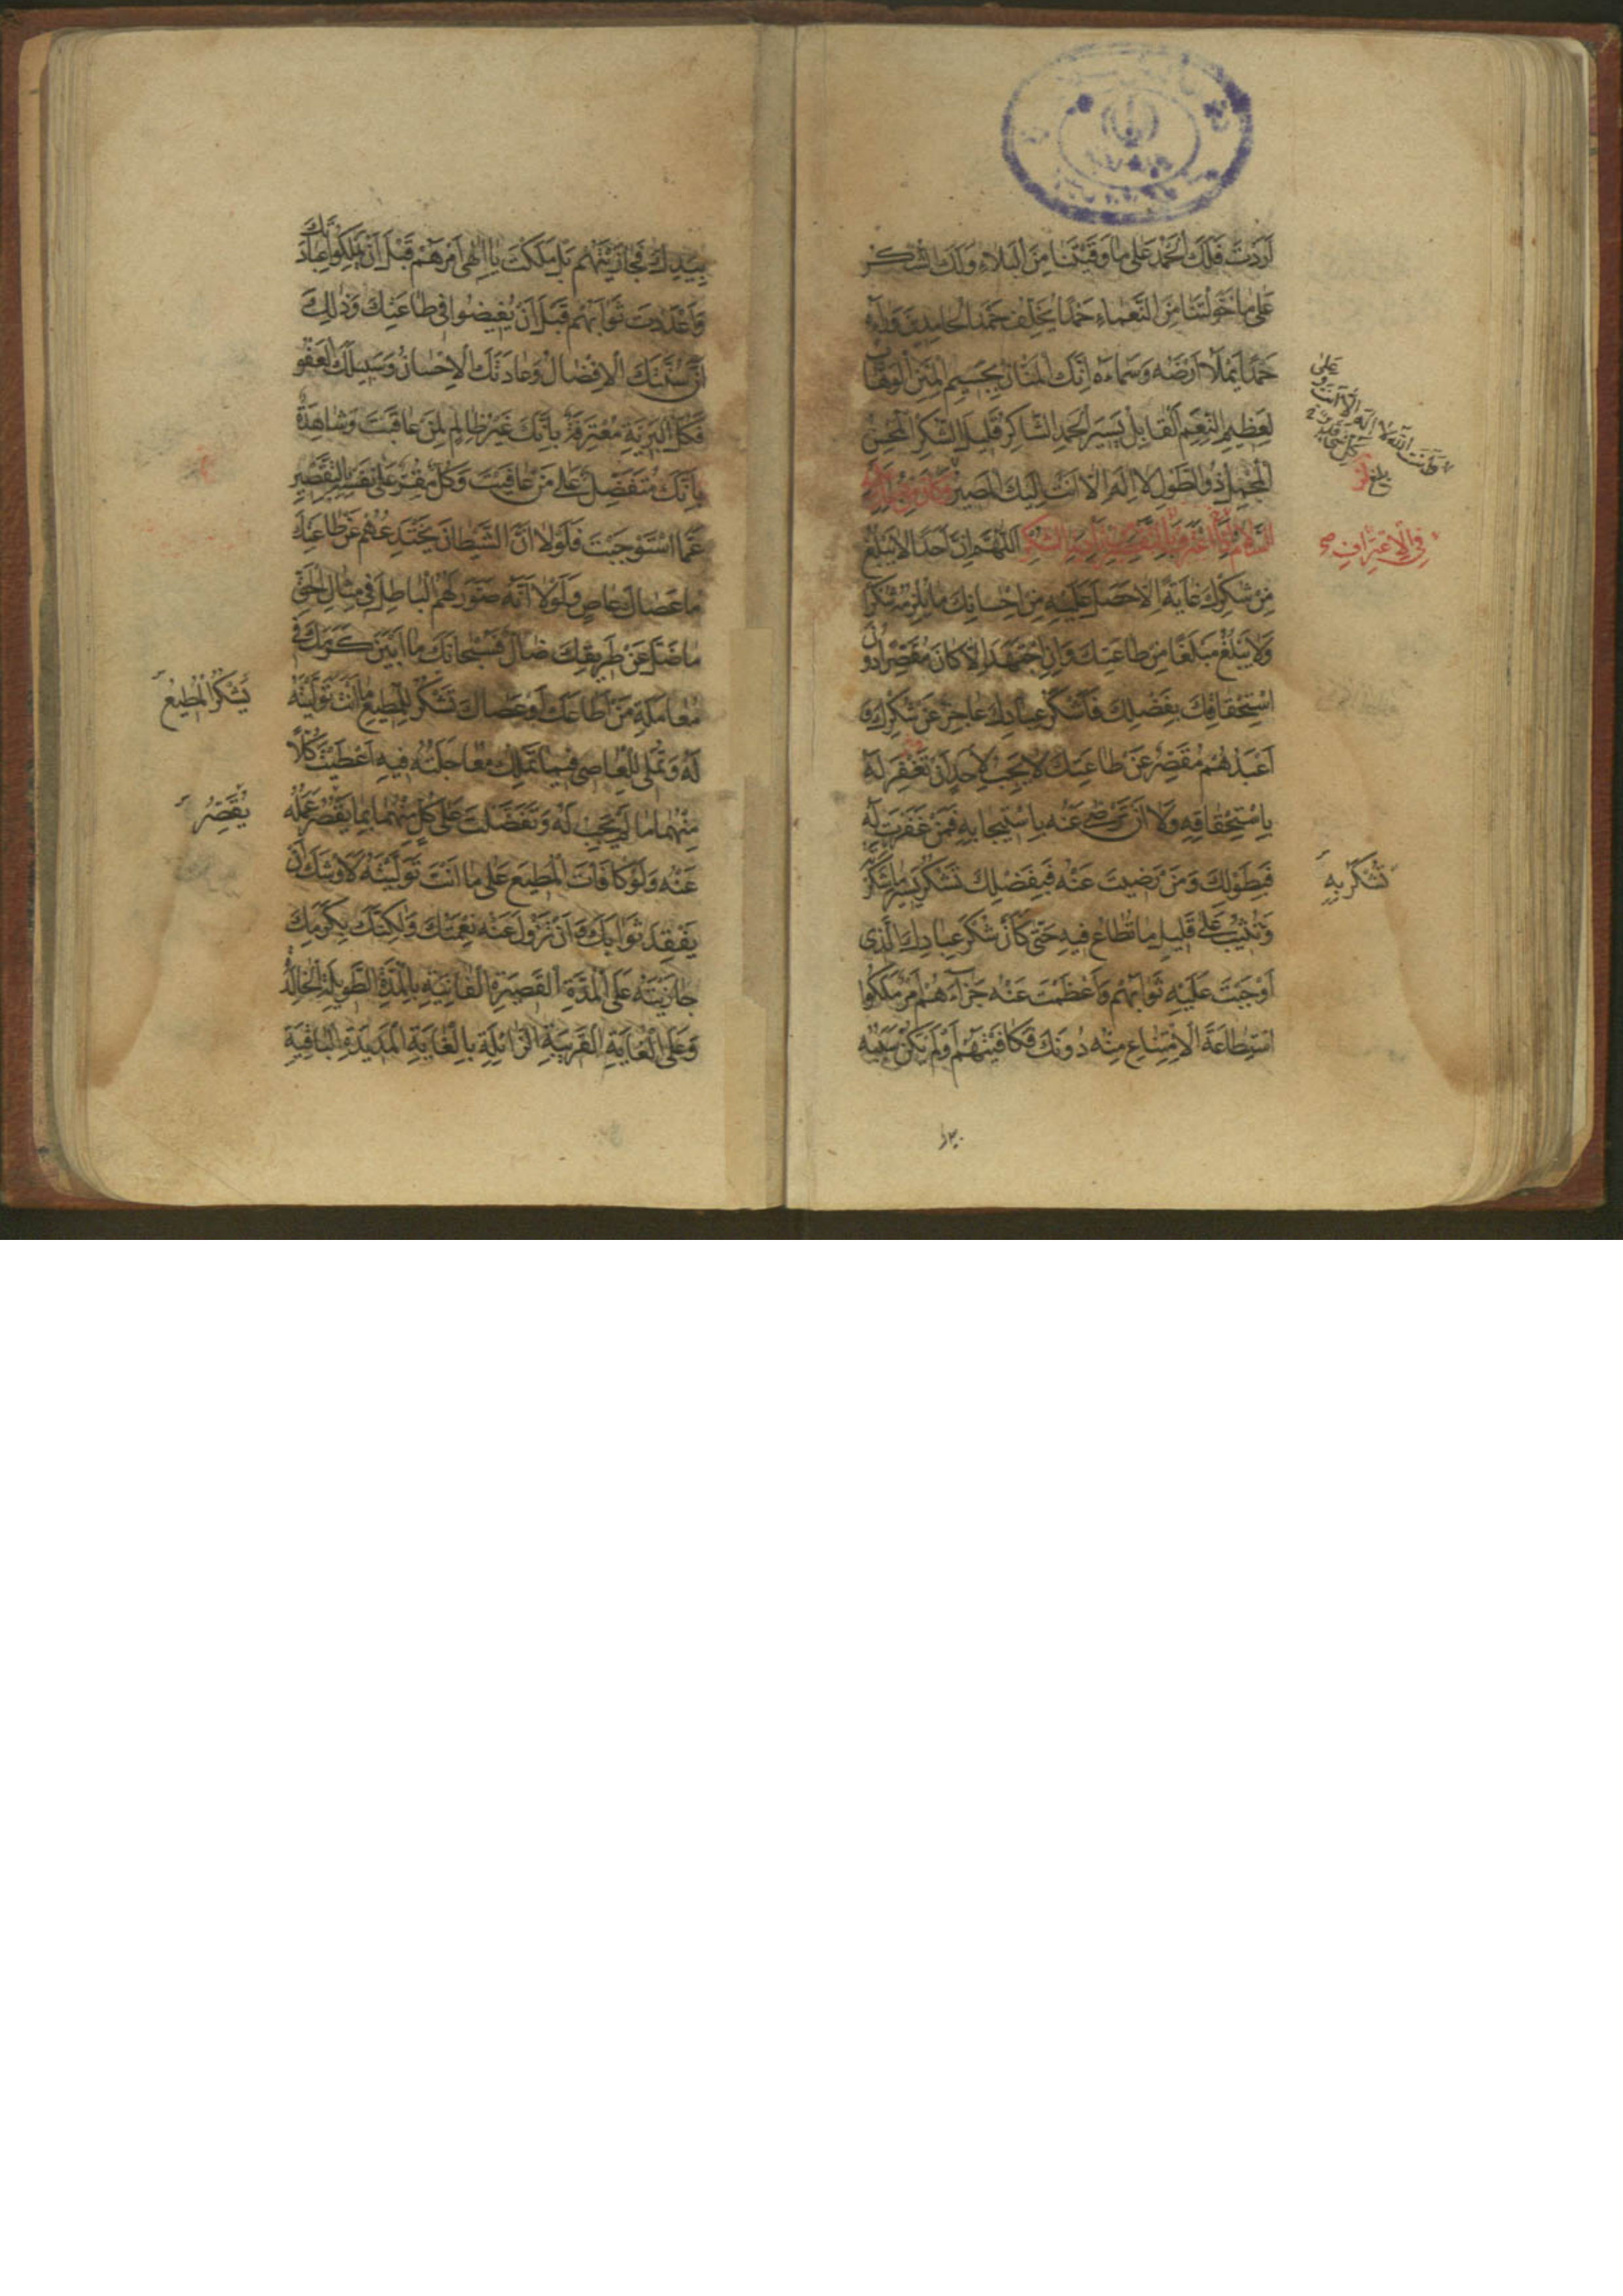 اَرَدْتَ فَلَكَ الْحَمْدُ عَلى ما وَقَيْتَنا مِنَ الْبَلاءِ وَلَكَ الشُّكْرُ
عَلى ما خَوَّلْتَنا مِنَ النَّعْماءِ حَمْدًا يُخَلِّفُ حَمْدَ الْحامِدينَ وَراءَهُ
حَمْدًا يَمْلَأُ اَرْضَهُ وَسَماءَهُ اِنَّكَ الْمَنّانُ بِجَسيمِ الْمِنَنِ الْوَهّابُ
لِعَظيمِ النِّعَمِ الْقابِلُ يَسيرَ الْحَمْدِ الشّاكِرُ قَليلَ الشُّكْرِ الْمُحْسِنُ
الْمُجْمِلُ ذُو الطَّوْلِ لا اِلهَ اِلّا اَنْتَ اِلَيْكَ الْمَصيرُ وَكانَ مِنْ دُعائِهِ عَلَيْهِ
السَّلامُ اِذَا اعْتَرَفَ بِالتَّقْصيرِ عَنْ تَأْدِيَةِ الشُّكْرِ اَللّهُمَّ اِنَّ اَحَدًا لا يَبْلُغُ
مِنْ شُكْرِكَ غايَةً اِلّا حَصَلَ عَلَيْهِ مِنْ اِحْسانِكَ ما يُلْزِمُهُ شُكْرًا
وَلا يَبْلُغُ مَبْلَغًا مِنْ طاعَتِكَ وَاِنِ اجْتَهَدَ اِلّا كانَ مُقَصِّرًا دُونَ
اسْتِحْقاقِكَ بِفَضْلِكَ فَاَشْكَرُ عِبادِكَ عاجِزٌ عَنْ شُكْرِكَ وَ
اَعْبَدُهُمْ مُقَصِّرٌ عَنْ طاعَتِكَ لا يَجِبُ لِاَحَدٍ اَنْ تَغْفِرَ لَهُ
بِاسْتِحْقاقِهِ وَلا اَنْ تَرْضى عَنْهُ بِاسْتيجابِهِ فَمَنْ غَفَرْتَ لَهُ
فَبِطَوْلِكَ وَمَنْ رَضيتَ عَنْهُ فَبِفَضْلِكَ تَشْكُرُ يَسيرَ ما شُكِرَ
وَتُثيبُ عَلى قَليلِ ما تُطاعُ فيهِ حَتّى كَاَنَّ شُكْرَ عِبادِكَ الَّذي
اَوْجَبْتَ عَلَيْهِ ثَوابَهُمْ وَاَعْظَمْتَ عَنْهُ جَزاءَهُمْ اَمْرٌ مَلَكُوا
اسْتِطاعَةَ الْاِمْتِناعِ مِنْهُ دُونَكَ فَكافَيْتَهُمْ اَوْ لَمْ يَكُنْ سَبَبُهُ
وَاَنْتَ اللّهُ لا اِلهَ اِلّا اَنْتَ وَ
عَلى كُلِّ شَيْءٍ قَديرٌ
بلغ
فِي الْاِعْتِرافِ صح
تَشْكُرُ بِهِ
بِيَدِكَ فَجازَيْتَهُمْ بَلْ مَلَكْتَ يا اِلهي اَمْرَهُمْ قَبْلَ اَنْ يَمْلِكُوا عِبادَتَكَ
وَاَعْدَدْتَ ثَوابَهُمْ قَبْلَ اَنْ يُفيضُوا في طاعَتِكَ وَذلِكَ
اَنَّ سُنَّتَكَ الْاِفْضالُ وَعادَتَكَ الْاِحْسانُ وَسَبيلَكَ الْعَفْوُ
فَكُلُّ الْبَرِيَّةِ مُعْتَرِفَةٌ بِاَنَّكَ غَيْرُ ظالِمٍ لِمَنْ عاقَبْتَ وَشاهِدَةٌ
بِاَنَّكَ مُتَفَضِّلٌ عَلى مَنْ عافَيْتَ وَكُلٌّ مُقِرٌّ عَلى نَفْسِهِ بِالتَّقْصيرِ
عَمَّا اسْتَوْجَبْتَ فَلَوْلا اَنَّ الشَّيْطانَ يَخْتَدِعُهُمْ عَنْ طاعَتِكَ
ما عَصاكَ عاصٍ وَلَوْلا اَنَّهُ صَوَّرَ لَهُمُ الْباطِلَ في مِثالِ الْحَقِّ
ما ضَلَّ عَنْ طَريقِكَ ضالٌّ فَسُبْحانَكَ ما اَبْيَنَ كَرَمَكَ في
مُعامَلَةِ مَنْ اَطاعَكَ اَوْ عَصاكَ تَشْكُرُ لِلْمُطيعِ ما اَنْتَ تَوَلَّيْتَهُ
لَهُ وَتُمْلي لِلْعاصي فيما تَمْلِكُ مُعاجَلَتَهُ فيهِ اَعْطَيْتَ كُلًّا
مِنْهُما ما لَمْ يَجِبْ لَهُ وَتَفَضَّلْتَ عَلى كُلٍّ مِنْهُما بِما يَقْصُرُ عَمَلُهُ
عَنْهُ وَلَوْ كافَاْتَ الْمُطيعَ عَلى ما اَنْتَ تَوَلَّيْتَهُ لَاَوْشَكَ اَنْ
يَفْقِدَ ثَوابَكَ وَاَنْ تَزُولَ عَنْهُ نِعْمَتُكَ وَلكِنَّكَ بِكَرَمِكَ
جازَيْتَهُ عَلَى الْمُدَّةِ الْقَصيرَةِ الْفانِيَةِ بِالْمُدَّةِ الطَّويلَةِ الْخالِدَةِ
وَعَلَى الْغايَةِ الْقَريبَةِ الزّائِلَةِ بِالْغايَةِ الْمَديدَةِ الْباقِيَةِ
يَشْكُرُ الْمُطيعَ
يُقَصِّرُ